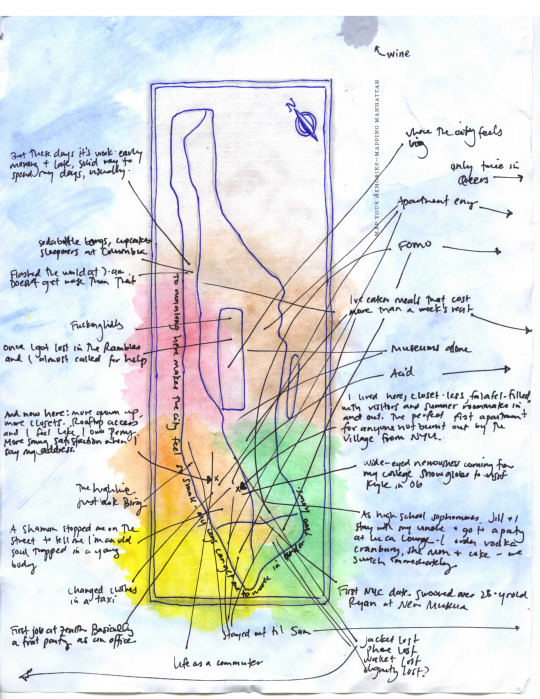 wine
N
MAP YOUR MEMORIES—MAPPING MANHATTAN
where the city feels
big
only twice in
Queens
Apartment envy
FOMO
I've eaten meals that cost
more than a week's rent
Museums alone
Acid
I lived here; closet-less, falafel-filled,
with visitors and summer roommates in
and out. The perfect first apartment
for anyone not burnt out by the
Village from NYU.
Wide-eyed nervousness coming from
my college snowglobe to visit
Kyle in 06
As high school sophomores, Jill + I
stay with my uncle + go to a party
at Luca Lounge - I order vodka
cranbury, she rum + coke - we
switch immediately.
First NYC date: swooned over 28-yr old
Ryan at
jacket lost
phone lost
wallet lost
dignity lost?
But these days it's work: early
morning + late, solid way to
spend my days, usually.
sodabottle bongs, cupcakes
sleepovers at Columbia
Flashed the world at 7am
Doesn't get worse than that
Fucking lids
Once I got lost in the Rambles
and I almost called for help
And now here: more grown up,
more closets. Rooftop access
and I feel like I own
More smug satisfaction when I
say my address.
The highline
just look
A shaman stopped me on the
street to tell me I'm an old
soul trapped in a young
body
Changed clothes
in a taxi
First job at Zenith. Basically
a frat party as an office
Life as a commuter
Stayed out til 5am
To run along here makes the city feel so small